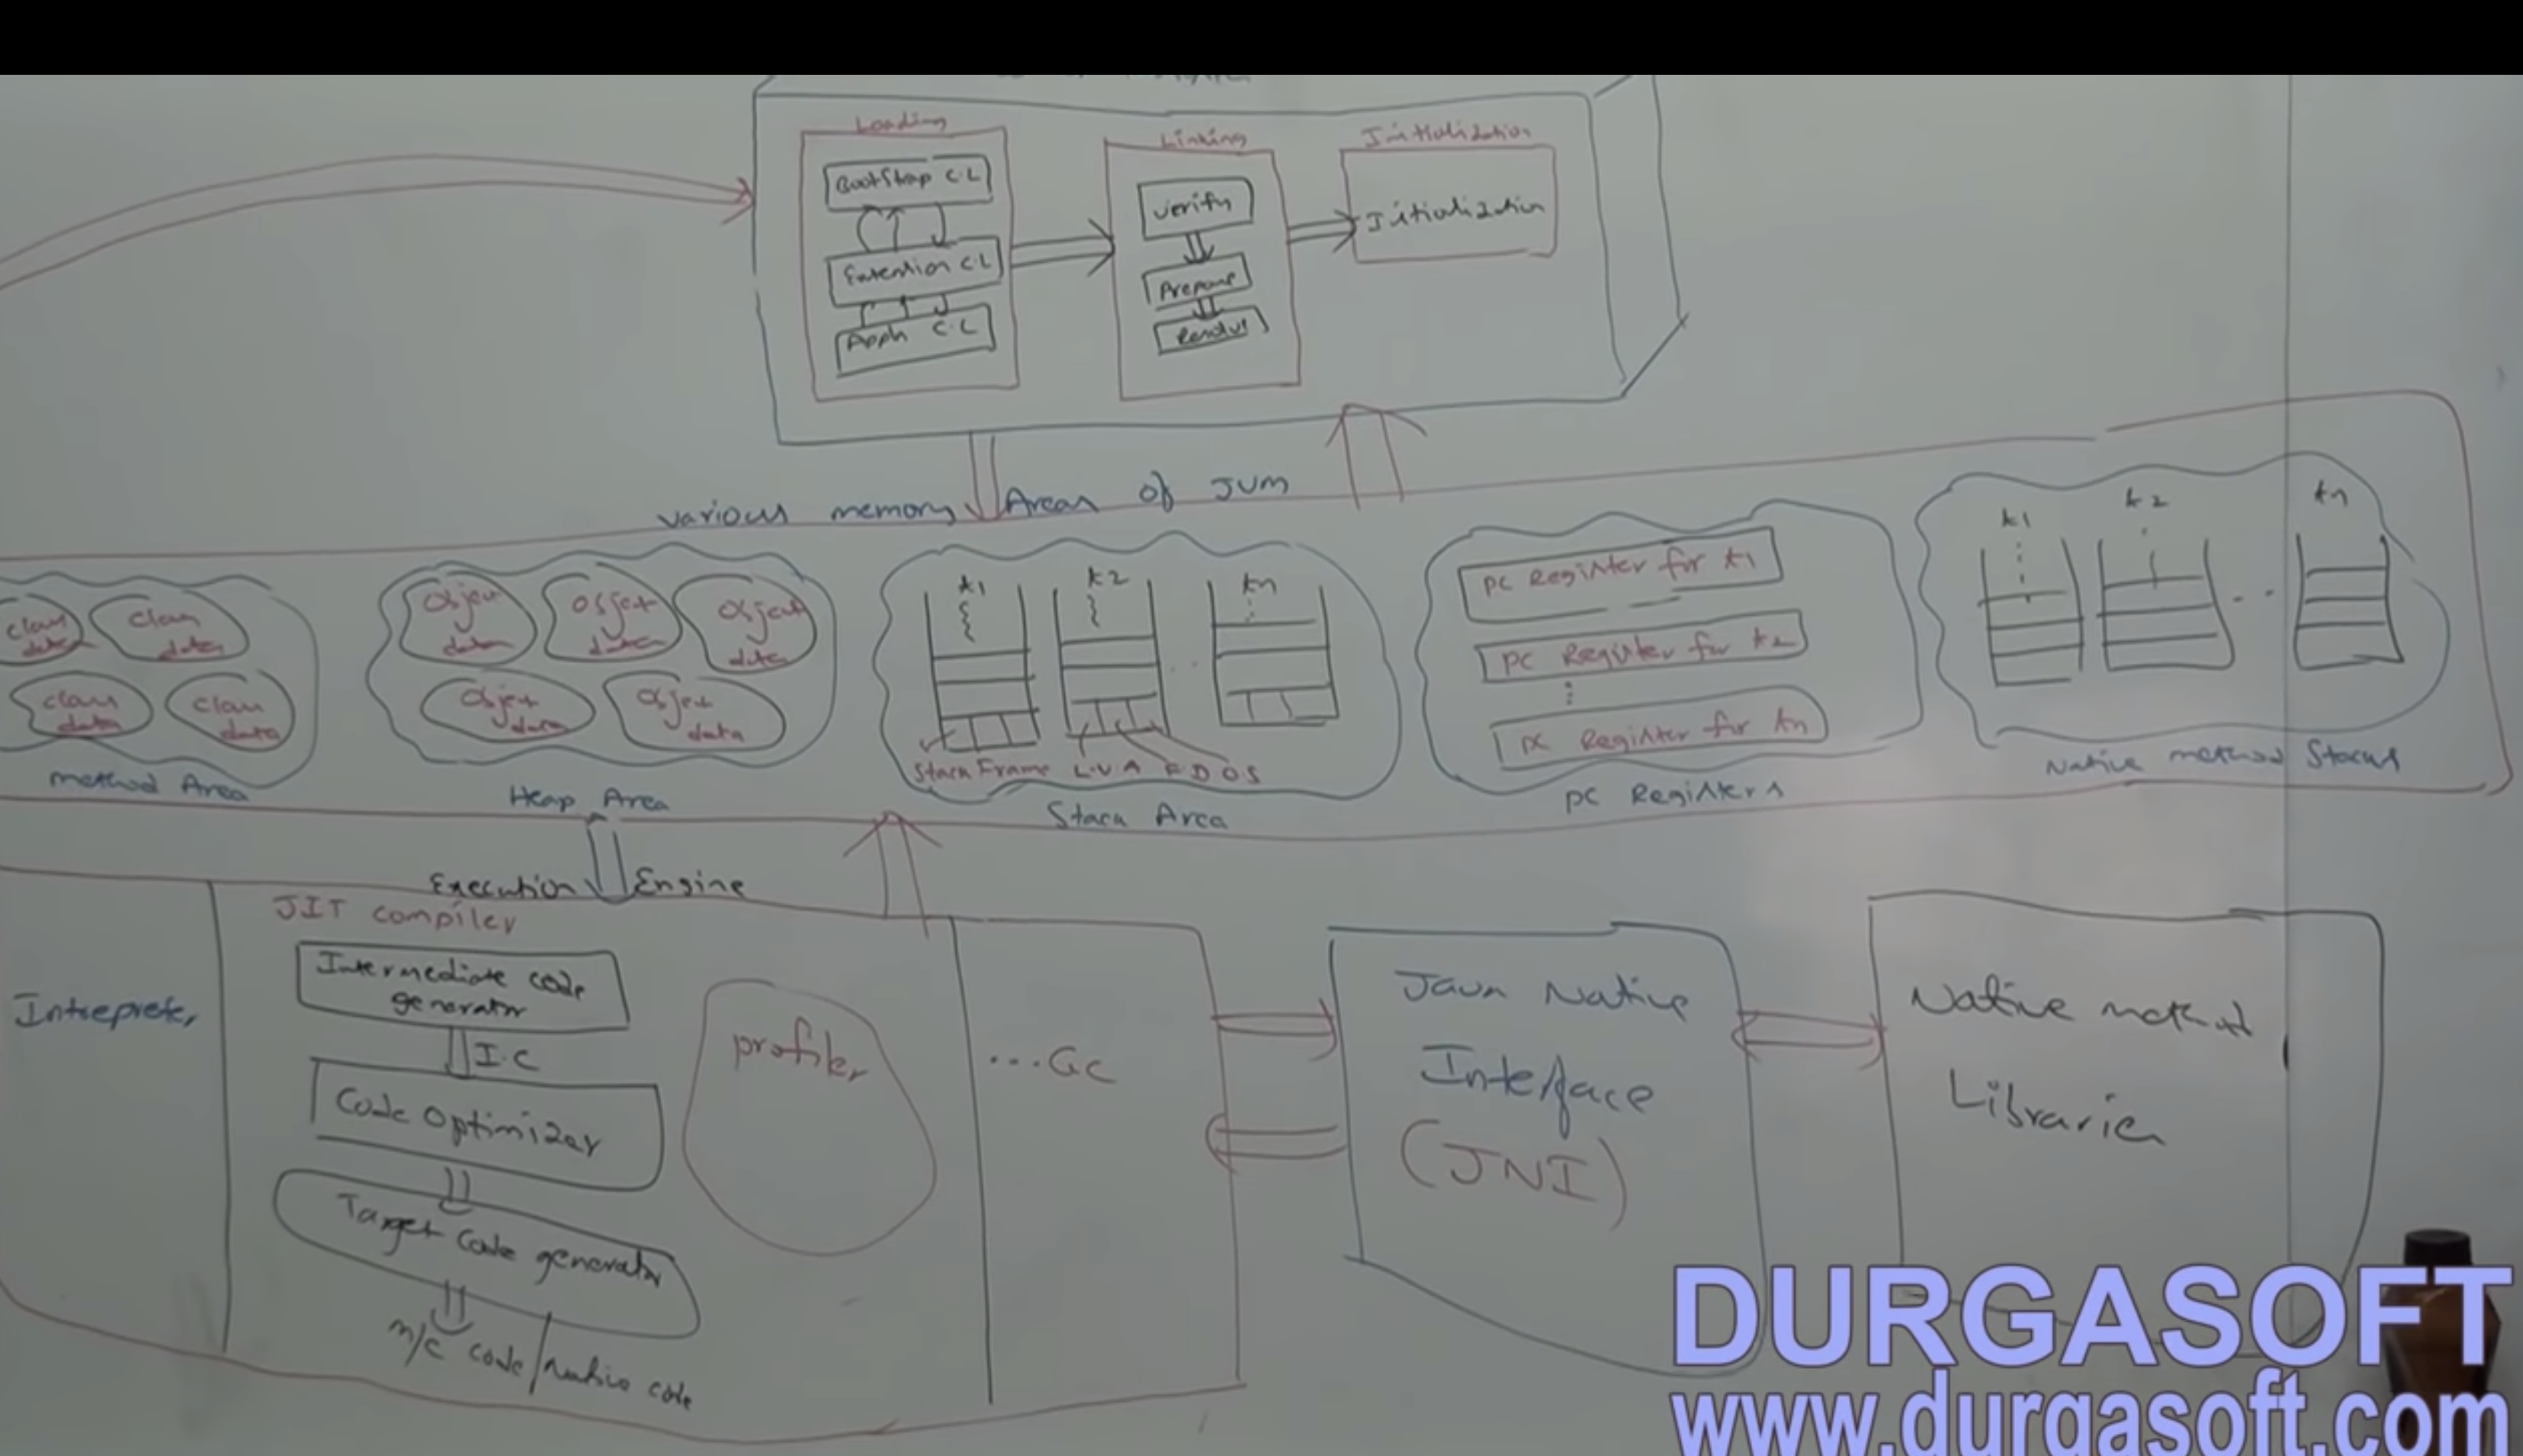 Loading
Bootstrap C.L
Extention C.L
Appln C.L
Linking
Verify
Prepare
Resolve
Initialization
Initialization
Various memory Areas of JVM
class data
class data
class data
class data
method Area
Object data
Object data
Object data
Object data
Object data
Heap Area
t1
t2
tn
Stack Frame L.V.A F.D O.S
Stack Area
PC Register for t1
PC Register for t2
PC Register for tn
PC Registers
t1
t2
tn
Native method Stacks
Execution Engine
Intrepreter
JIT compiler
Intermediate code
generator
I.C
Code Optimizer
Target Code generator
m/c code/native code
profiler
...GC
Java Native
Interface
(JNI)
Native method
Libraries
DURGASOFT
www.durgasoft.com